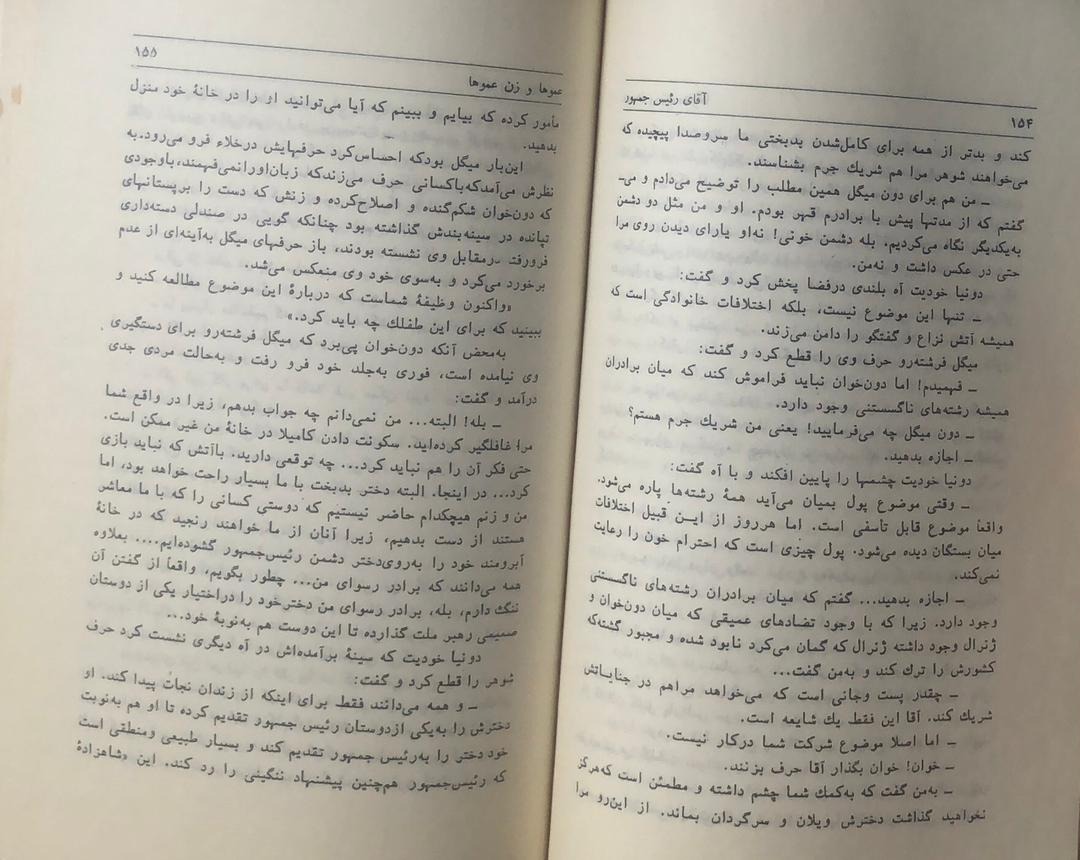 ۱۵۴
آقای رئیس جمهور
کند و بدتر از همه برای کامل‌شدن بدبختی ما سروصدا پیچیده که
می‌خواهند شوهر مرا هم شریك جرم بشناسند.
ـ من هم برای دون میگل همین مطلب را توضیح می‌دادم و می‌ـ
گفتم که از مدتها پیش با برادرم قهر بودم. او و من مثل دو دشمن
به‌یکدیگر نگاه می‌کردیم. بله دشمن خونی! نه‌او یارای دیدن روی مرا
حتی در عکس داشت و نه‌من.
دونیا خودیت آه بلندی درفضا پخش کرد و گفت:
ـ تنها این موضوع نیست، بلکه اختلافات خانوادگی است که
همیشه آتش نزاع و گفتگو را دامن می‌زند.
میگل فرشته‌رو حرف وی را قطع کرد و گفت:
ـ فهمیدم! اما دون‌خوان نباید فراموش کند که میان برادران
همیشه رشته‌های ناگسستنی وجود دارد.
ـ دون میگل چه می‌فرمایید! یعنی من شریك جرم هستم؟
ـ اجازه بدهید.
دونیا خودیت چشمها را پایین افکند و با آه گفت:
ـ وقتی موضوع پول بمیان می‌آید همهٔ رشته‌ها پاره می‌شود.
واقعاً موضوع قابل تأسفی است. اما هرروز از ایـن قبیل اختلافات
میان بستگان دیده می‌شود. پول چیزی است که احترام خون را رعایت
نمی‌کند.
ـ اجازه بدهید... گفتم که میان برادران رشته‌های ناگسستنی
وجود دارد. زیرا که با وجود تضادهای عمیقی که میان دون‌خوان و
ژنرال وجود داشته ژنرال که گمان می‌کرد نابود شده و مجبور گشته‌که
کشورش را ترك کند و به‌من گفت...
ـ چقدر پست وجانی است که می‌خواهد مراهم در جنایـاتش
شریك کند. آقا این فقط یك شایعه است.
ـ اما اصلا موضوع شرکت شما درکار نیست.
ـ خوان! خوان بگذار آقا حرف بزنند.
ـ به‌من گفت که به‌کمك شما چشم داشته و مطمئن است که‌هرگز
نخواهید گذاشت دخترش ویلان و سرگردان بماند. از این‌رو مرا
۱۵۵
عموها و زن عموها
مأمور کرده که بیایم و ببینم که آیا می‌توانید او را در خانهٔ خود منزل
بدهید.
این‌بار میگل بودکه احساس‌کرد حرفهایش درخلاء فرو می‌رود.به
نظرش می‌آمدکه‌باکسانی حرف می‌زندکه زبان‌اورانمی‌فهمند،باوجودی
که دون‌خوان شکم‌گنده و اصلاح‌کرده و زنش که دست را برپستانهای
تپانده در سینه‌بندش گذاشته بود چنانکه گویی در صندلی دسته‌داری
فرورفته درمقابل وی نشسته بودند، باز حرفهای میگل به‌آینه‌ای از عدم
برخورد می‌کرد و به‌سوی خود وی منعکس می‌شد.
«واکنون وظیفهٔ شماست که دربارهٔ این موضوع مطالعه کنید و
ببینید که برای این طفلك چه باید کرد.»
به‌محض آنکه دون‌خوان پی‌برد که میگل فرشته‌رو برای دستگیری
وی نیامده است، فوری به‌جلد خود فرو رفت و به‌حالت مردی جدی
درآمد و گفت:
ـ بله! البته... من نمی‌دانم چه جواب بدهم، زیرا در واقع شما
مرا غافلگیر کرده‌اید. سکونت دادن کامیلا در خانهٔ من غیر ممکن است.
حتی فکر آن را هم نباید کرد... چه توقعی دارید. باآتش که نباید بازی
کرد... در اینجا. البته دختر بدبخت با ما بسیار راحت خواهد بود، اما
من و زنم هیچکدام حاضر نیستیم که دوستی کسانی را که با ما معاشر
هستند از دست بدهیم، زیرا آنان از ما خواهند رنجید که در خانهٔ
آبرومند خود را به‌روی‌دختر دشمن رئیس‌جمهور گشوده‌ایم.... بعلاوه
همه می‌دانند که برادر رسوای من... چطور بگویم، واقعاً از گفتن آن
ننگ دارم، بله، برادر رسوای من دخترخود را دراختیار یکی از دوستان
صمیمی رهبر ملت گذارده تا این دوست هم به‌نوبهٔ خود...
دونیا خودیت که سینهٔ برآمده‌اش در آه دیگری نشست کرد حرف
شوهر را قطع کرد و گفت:
ـ و همه می‌دانند فقط برای اینکه از زندان نجات پیدا کند. او
دخترش را به‌یکی ازدوستان رئیس جمهور تقدیم کرده تا او هم به‌نوبت
خود دختر را به‌رئیس جمهور تقدیم کند و بسیار طبیعی ومنطقی است
که رئیس‌جمهور هم‌چنین پیشنهاد ننگینی را رد کند. این «شاهزادهٔ